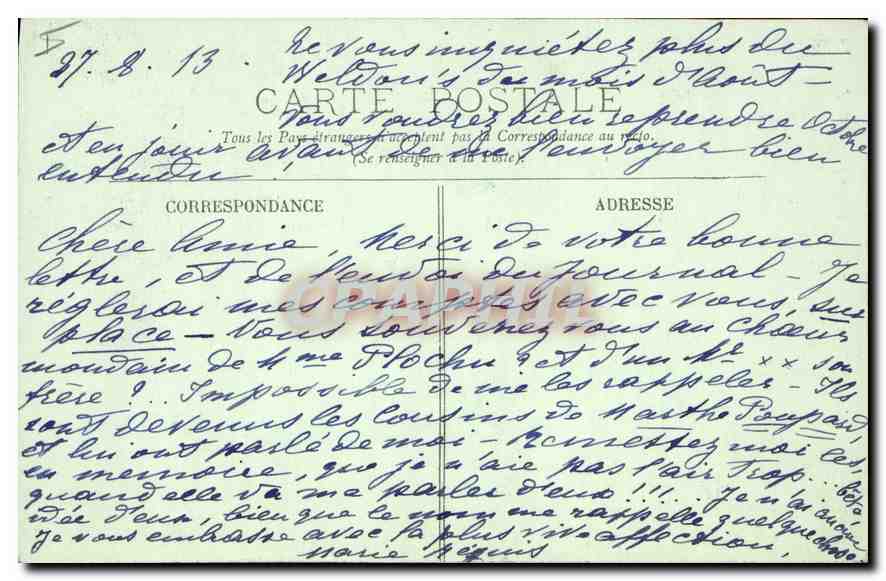 27. 8. 13.
Ne vous inquiétez plus du
Weldon's du mois d'Août -
CARTE POSTALE
Vous voudrez bien reprendre Octobre
Tous les Pays étrangers n'acceptent pas la Correspondance au recto.
et en jouir avant de me l'envoyer bien
(Se renseigner à la Poste).
entendu !
CORRESPONDANCE
ADRESSE
Chère Amie, Merci de votre bonne
lettre, et de l'envoi du Journal - Je
règlerai mes comptes avec vous, sur
place - Vous souvenez vous au chœur
mondain de Mme Plochu ? et d'un Mr xx son
frère ?.. Impossible de me les rappeler - Ils
sont devenus les cousins de Marthe Poupard,
et lui ont parlé de moi - Remettez moi les,
en mémoire, que je n'aie pas l'air trop... bête
quand elle va me parler d'eux !!!... Je n'ai aucune
idée d'eux, bien que le nom me rappelle quelque chose
Je vous embrasse avec la plus vive affection,
Marie
CPAPHIL